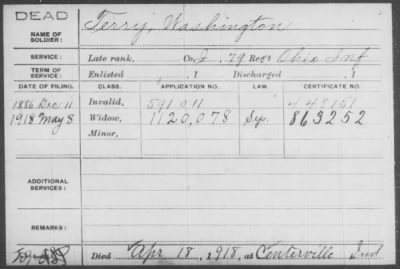 DEAD
NAME OF SOLDIER: Terry, Washington
SERVICE: Late rank, Co. I, 79 Reg't Ohio Inf
TERM OF SERVICE: Enlisted , 1 Discharged , 1
DATE OF FILING. CLASS. APPLICATION NO. LAW. CERTIFICATE NO.
1886 Dec 11 Invalid, 591 011
1918 May 8 Widow, 1120,078 863252
Minor,
ADDITIONAL SERVICES:
REMARKS:
Died Apr 18, 1918, at Centerville Ind